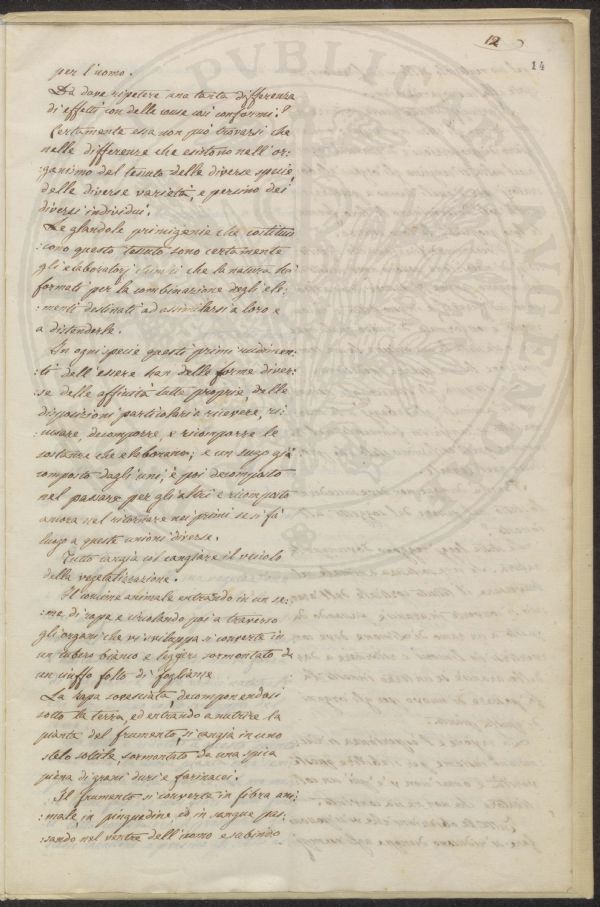 12
14
per l'uomo.
Da dove ripetere una tanta differenza
di effetti con delle cause così conformi?
Certamente essa non può trovarsi che
nelle differenze che esistono nell'or:
:ganismo del tessuto delle diverse specie,
delle diverse varietà, e persino dei
diversi individui.
Le glandole primigenie che costituis
cono questo tessuto sono certamente
gli elaboratorj che la natura ha
formati per la combinazione degli ele:
:menti destinati ad assimilarsi a loro e
a distenderle.
In ogni specie questi primi rudimen:
:ti dell'essere han delle forme diver:
:se delle affinità tutte proprie, delle
disposizioni particolari a ricevere, ri:
:cusare, decomporre, e ricomporre le
sostanze che elaborano; e un sugo già
composto dagli uni, è poi decomposto
nel passare per gli altri e ricomposto
ancora nel ritornare nei primi se si fà
luogo a queste unioni diverse.
Tutto cangia col cangiare il veicolo
della vegetalizzazione.
Il concime animale entrando in un se:
:me di rapa e circolando poi a traverso
gli organi che vi sviluppa si converte in
un tubero bianco e leggero sormontato da
un ciuffo folto di fogliame
La rapa rovesciata, decomponendosi
sotto la terra, ed entrando a nutrire la
pianta del frumento, si cangia in uno
stelo sottile, sormontato da una spica
piena di grani duri e farinacei.
Il frumento si converte in fibra ani:
:male, in pinguedine ed in sangue pas:
:sando nel ventre dell'uomo e subindo
PVBLICA